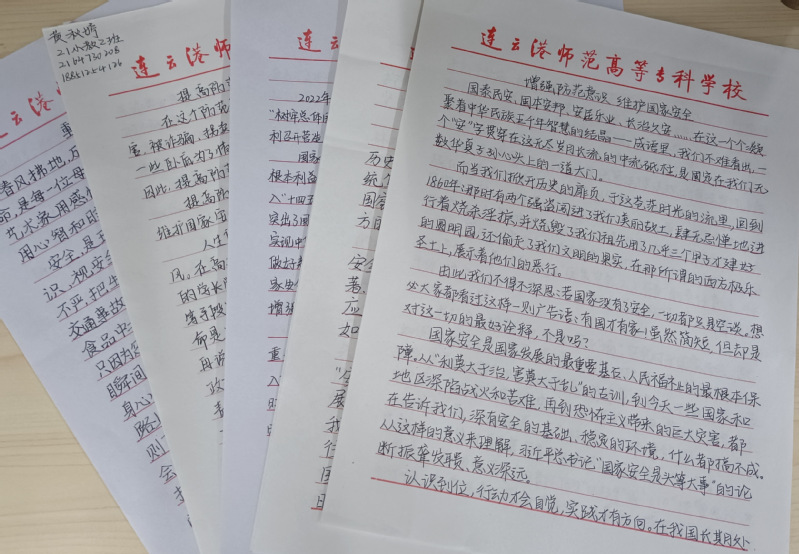 黄秋婧
21小教23班
2164730208
18851254126
连云港师范高等专科学校
增强防范意识 维护国家安全
国泰民安，国本安邦，安居乐业，长治久安……在这一个个凝
聚着中华民族五千年智慧的结晶——成语里，我们不难看出，一
个"安"字贯穿在这无尽岁月长流的中流砥柱，是国安在我们无
数华夏子孙心头上的一道大门。
而当我们掀开历史的扉页，于这茫茫时光的流里，回到
1860年，那时有两个强盗闯进了我们美丽故土，肆无忌惮地进
行着烧杀淫掠，并烧毁了我们祖先用了几乎三个甲子才建好
的圆明园，还偷走了我们文明的果实，在那所谓的西方极乐
圣土上，展示着他们的恶行。
由此我们不得不深思：若国家没有了安全，一切都只是空谈。想
必大家都看过这样一则广告语：有国才有家！虽然简短，但却是
对这一切的最好诠释，不是吗？
国家安全是国家发展的最重要基石、人民福祉的最根本保
障。从"利莫大于治，害莫大于乱"的古训，到今天一些国家和
地区深陷战火和苦难，再到恐怖主义带来的巨大灾害，都
在告诉我们，没有安全的基础、稳定的环境，什么都搞不成。
从这样的意义来理解，习近平总书记"国家安全是头等大事"的论
断振聋发聩，意义深远。
认识到位，行动才会自觉，实践才有方向。在我国长期处
连云港师
提高防范
在这个防范
因此，提高防范
提高防范
维护国家安
人生
风。在高
的成长
连云港
2022年
利召开营造
国家
根本利益
入"十四五
突出了国
实现中
做好
家安全
增强
历史
统
国家
方面
安全
著
应
如
展
我
行
国
春风拂地，万
命，是每一位母
艺术家用感
用心智和时
安全，是
识，视安全
不严，把生
交通事故
食品中
只因为
瞬间
身心
则
会